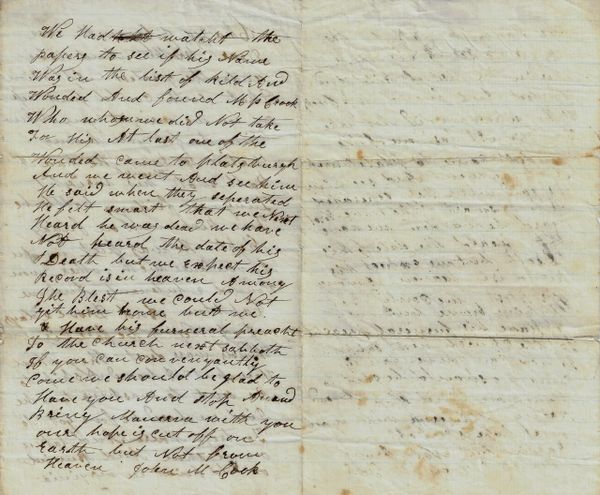 We Had watcht the
papers to see if his Name
Was in the list of kild And
Wonded And found M P Cook
Who whom we did Not take
For His At last one of the
Wonded came to platsburgh
And we went And see him
He said when they seperated
He felt smart that we Next
Heard he was dead we have
Not heard the date of his
Death but we expect his
Record is in heaven Among
The Blest we could Not
git him home but we
Have his furneral preacht
To the church next sabboth
If you can convenyantly
Come we should be glad to
Have you And stop And
Bring Manerva with you
our hope is cut off on
Earth but Not from
Heaven John M Cook